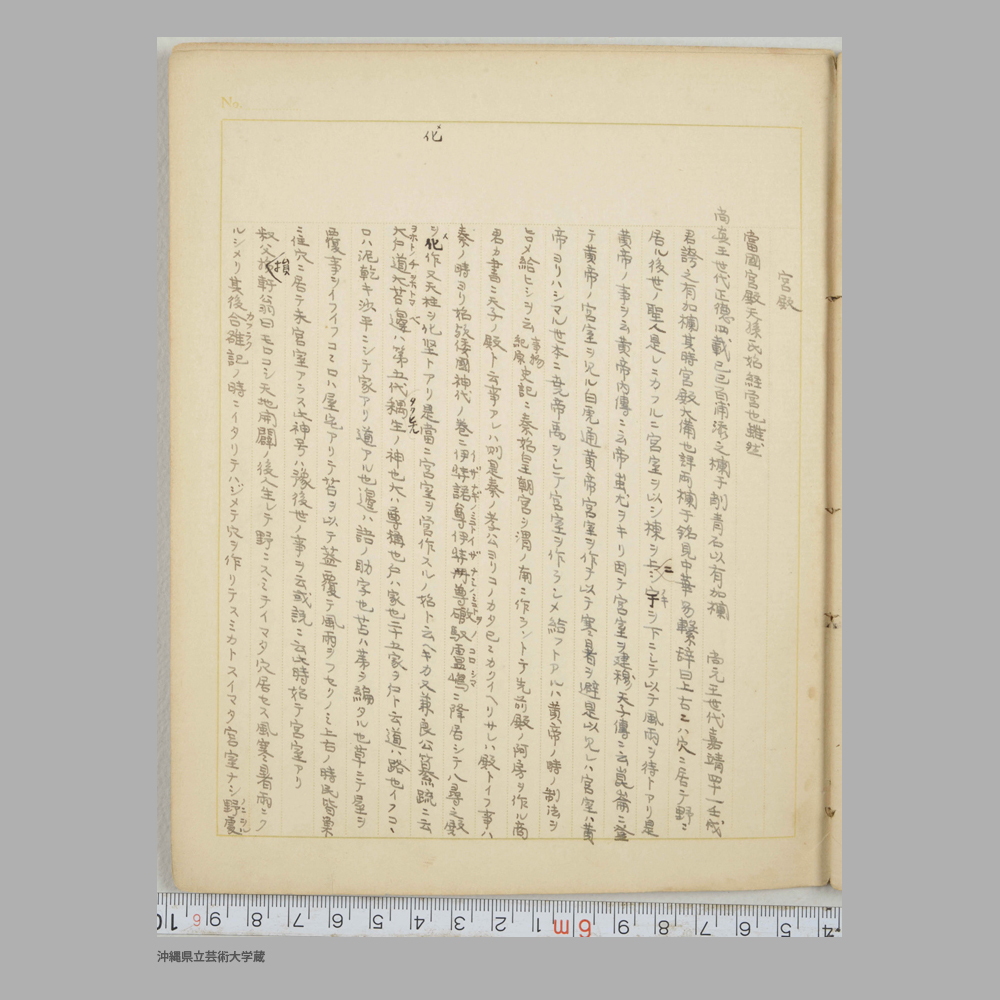 No.
化
宮殿
當國宮殿天孫氏始経営也雖然
尚真王世代正德四載己巳百浦添之欄干削青石以有加欄 尚元王世代嘉靖四十一壬戌
君誇之有加欄其時宮殿大備也詳両欄干銘見中華易繋辞曰上古ニハ穴ニ居テ野ニ
居ル後世ノ聖人是レニカフルニ宮室ヲ以シ棟ヲ上ニシ宇ヲ下ニシテ以テ風雨ヲ待トアリ是
黄帝ノ事ヲ云黄帝内傳ニ云帝蚩尤ヲキリ因テ宮室ヲ建穆天子傳ニ云崑崙ニ登
テ黄帝ノ宮室ヲ見ル白虎通黄帝宮室ヲ作テ以テ寒暑ヲ避是以見レハ宮室ハ黄
帝ヨリハシマル世本ニ堯帝禹ヲシテ宮室ヲ作ラシメ給フトアルハ黄帝ノ時ノ制法ヲ
旨メ給ヒシヲ云 事物紀原史記ニ秦始皇朝宮ヲ渭ノ南ニ作ラントテ先前殿ノ阿房ヲ作ル商
君カ書ニ天子ノ殿ト云事アレハ則是秦ノ孝公ヨリコノカタ已ニカクイヘリサレハ殿トイフ事ハ
秦ノ時ヨリ始レ倭國神代ノ巻ニ伊弉諾尊伊弉冊尊磤馭盧嶋ニ降居シテ八尋之殿
ヲ化作又天柱ヲ化竪トアリ是當ニ宮室ヲ営作スルノ始ト云ヘキカ又兼良公纂疏ニ云
大戸道大苫邊ハ第五代耦生ノ神也大ハ尊稱也戸ハ家也二十五家ヲ戸ト云道ハ路也イフコヽ
ロハ泥乾キ沙平ニシテ家アリ道アル也邊ハ語ノ助字也苫ハ茅ヲ編タル也草ニテ屋ヲ
覆事ヲイフイフコヽロハ屋宅アリテ苫ヲ以テ蓋覆テ風雨ヲフセクノミ上古ノ時民皆巣
ニ住穴ニ居テ未宮室アラス此神号ハ豫後世ノ事ヲ云或説ニ云此時始テ宮室アリ
叔父損軒翁曰モロコシ天地開闢ノ後人生レテ野ニスミテイマタ穴居セス風寒暑雨ニク
ルシメリ其後合雒記ノ時ニイタリテハジメテ穴ヲ作リテスミカトスイマタ宮室ナシ野處
沖縄県立芸術大学蔵